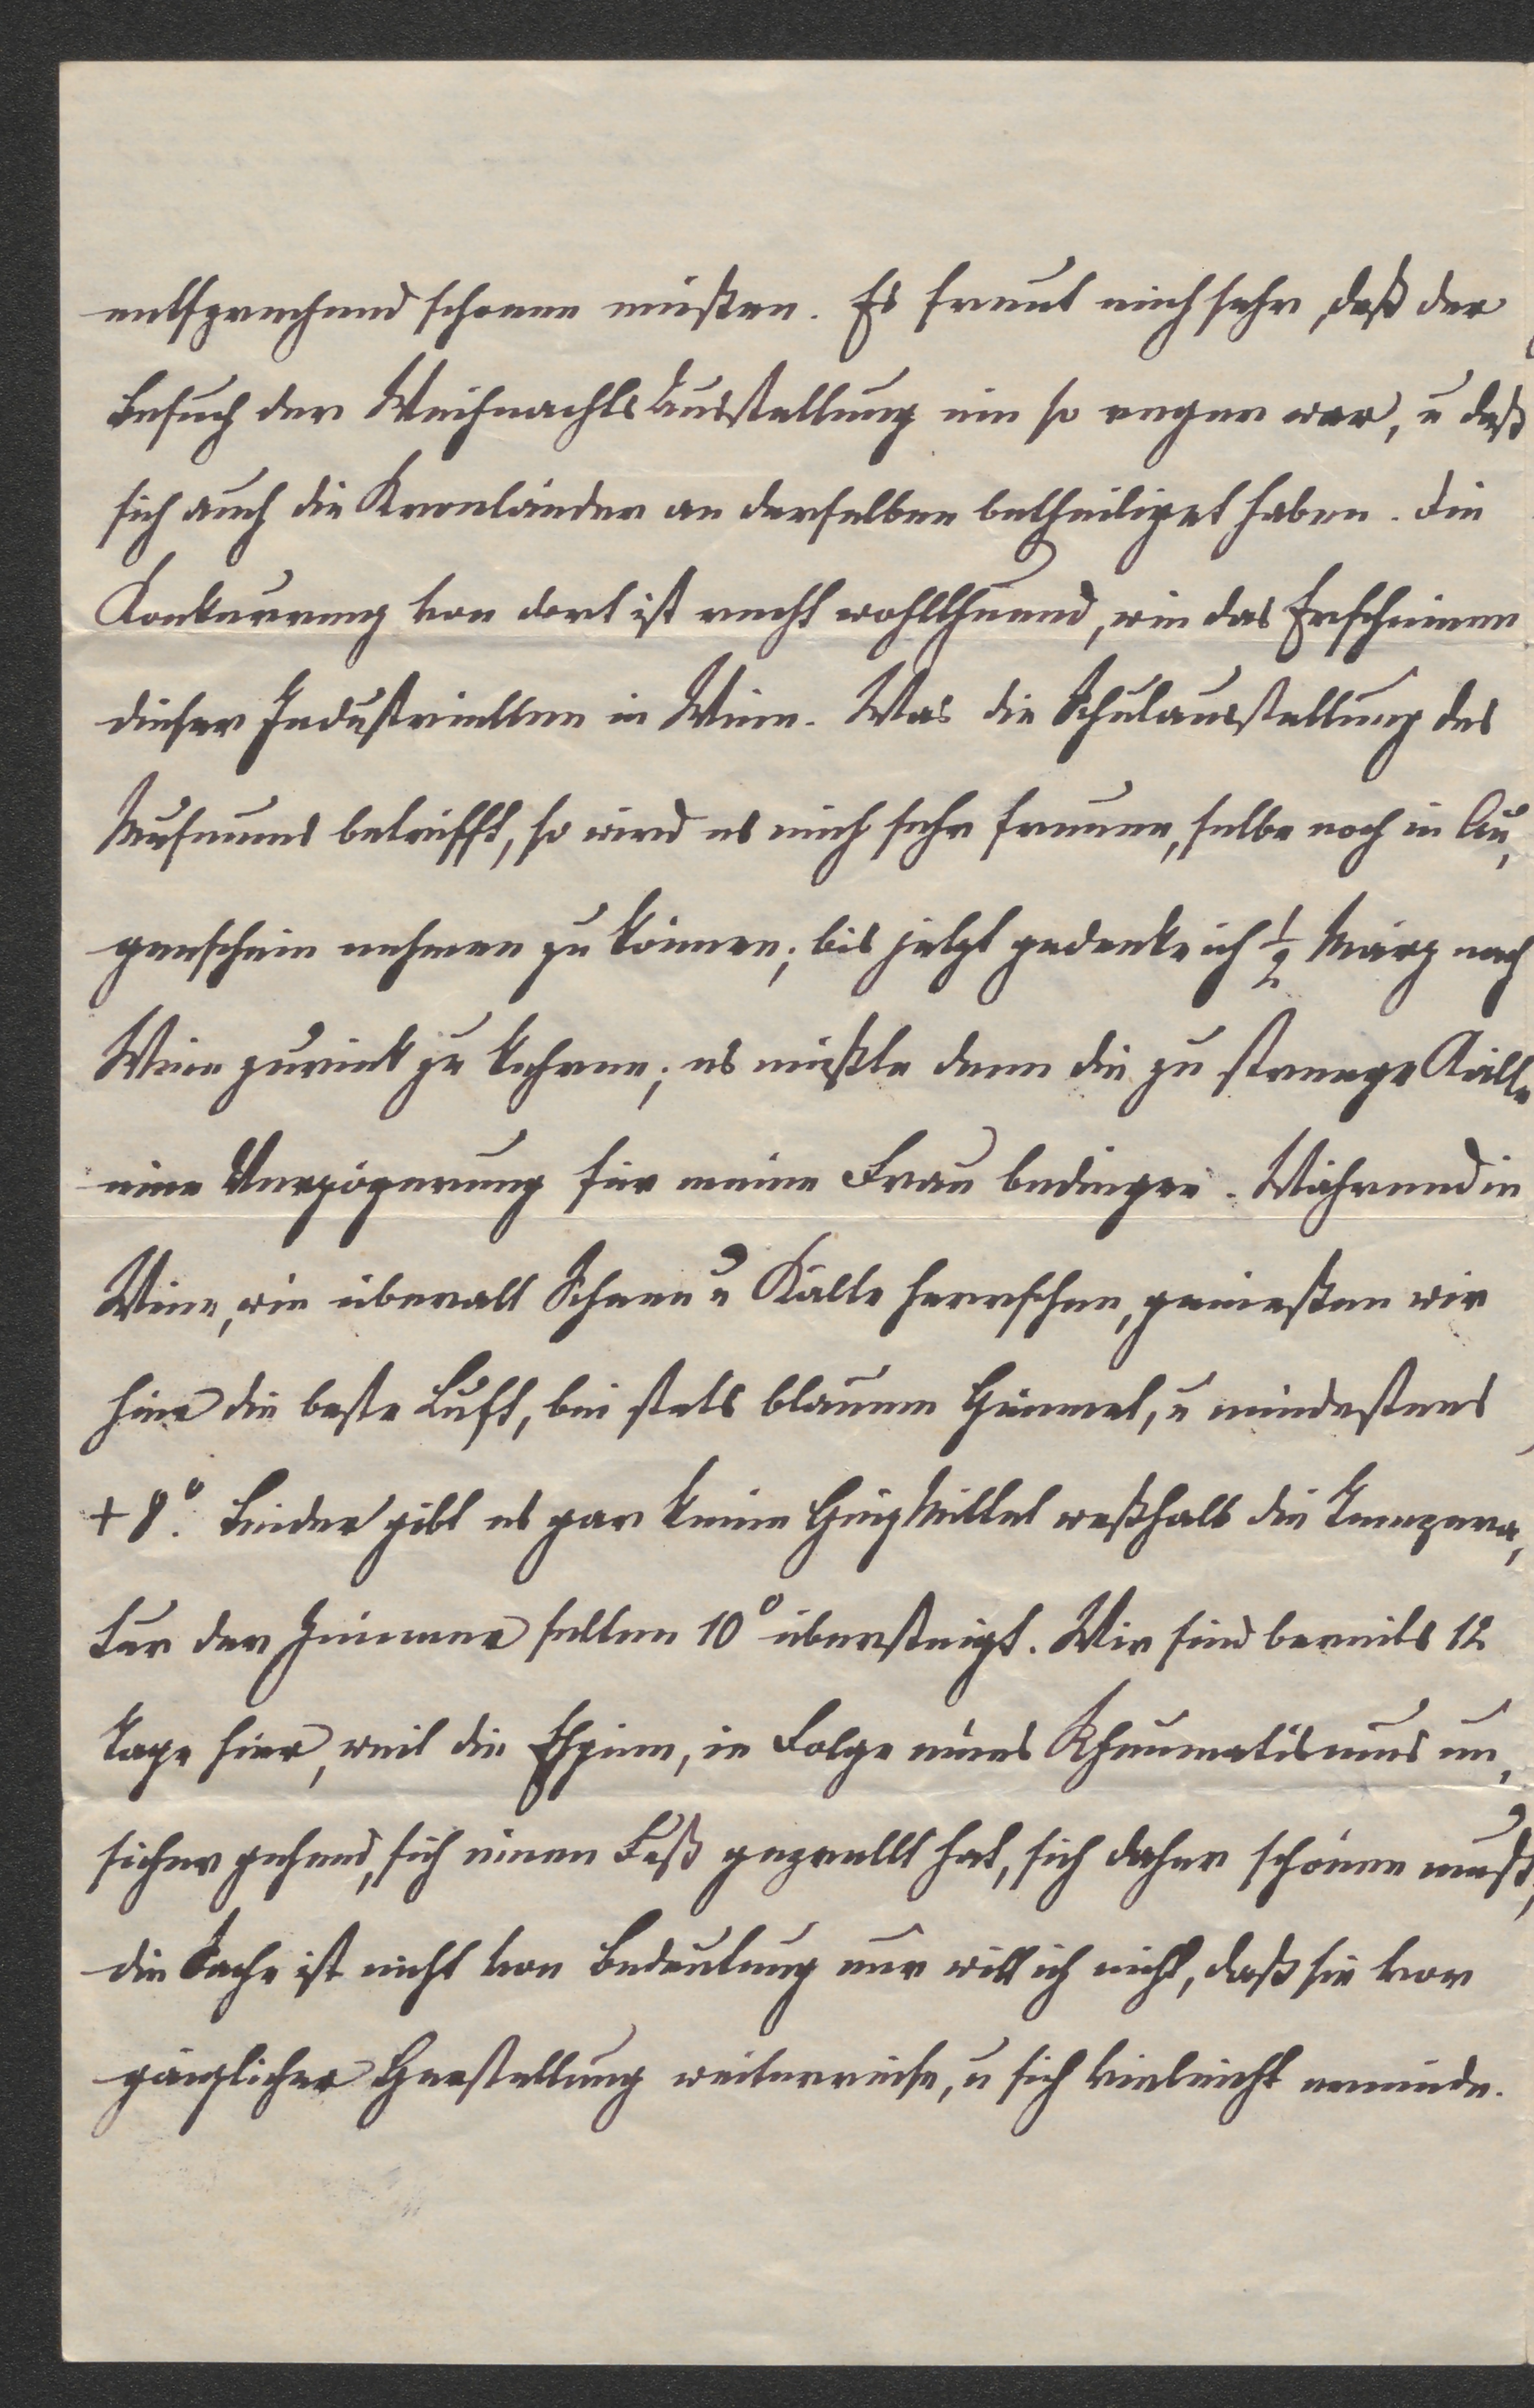 entsprechend schonen müßten. Es freut mich sehr, daß der
Besuch der Weihnachts Ausstellung ein so reger war, u daß
sich auch die Kronländer an derselben betheiliget haben. Die
Konkurrenz von dort ist recht wohlthuend, wie das Erscheinen
dieser Industriellen in Wien. Was die Schulausstellung des
Museums betrifft, so wird es mich sehr freuen, selbe noch in Au,
genschein nehmen zu können; bis jetzt gedenke ich ½ März nach
Wien zurück zu kehren; es müßte denn die zu strenge Kälte
eine Verzögerung für meine Frau bedingen. Während in
Wien, wie überall Schnee u Kälte herrschen, genießen wir
hier die beste Luft, bei stets blauem Himmel, u mindestens
+ 8°. Leider gibt es gar keine Heiz Mittel weßhalb die Tempera,
tur der Zimmer selten 10° übersteigt. Wir sind bereits 12
Tage hier, weil die in Folge eines Rheumatismus un,
sicher gehend, sich einen Fuß geprellt hat, sich daher schonen muß,
die Sache ist nicht von Bedeutung nur will ich nicht, daß sie vor
gänzlicher Herstellung weiterreise, u sich vieleicht ermüde.